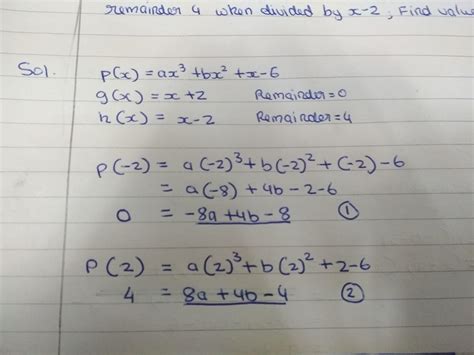 remainder 4 when divided by x-2, Find value
Sol. p(x) = ax³ + bx² + x - 6
g(x) = x + 2 Remainder = 0
h(x) = x - 2 Remainder = 4
p(-2) = a(-2)³ + b(-2)² + (-2) - 6
= a(-8) + 4b - 2 - 6
0 = -8a + 4b - 8 ①
P(2) = a(2)³ + b(2)² + 2 - 6
4 = 8a + 4b - 4 ②